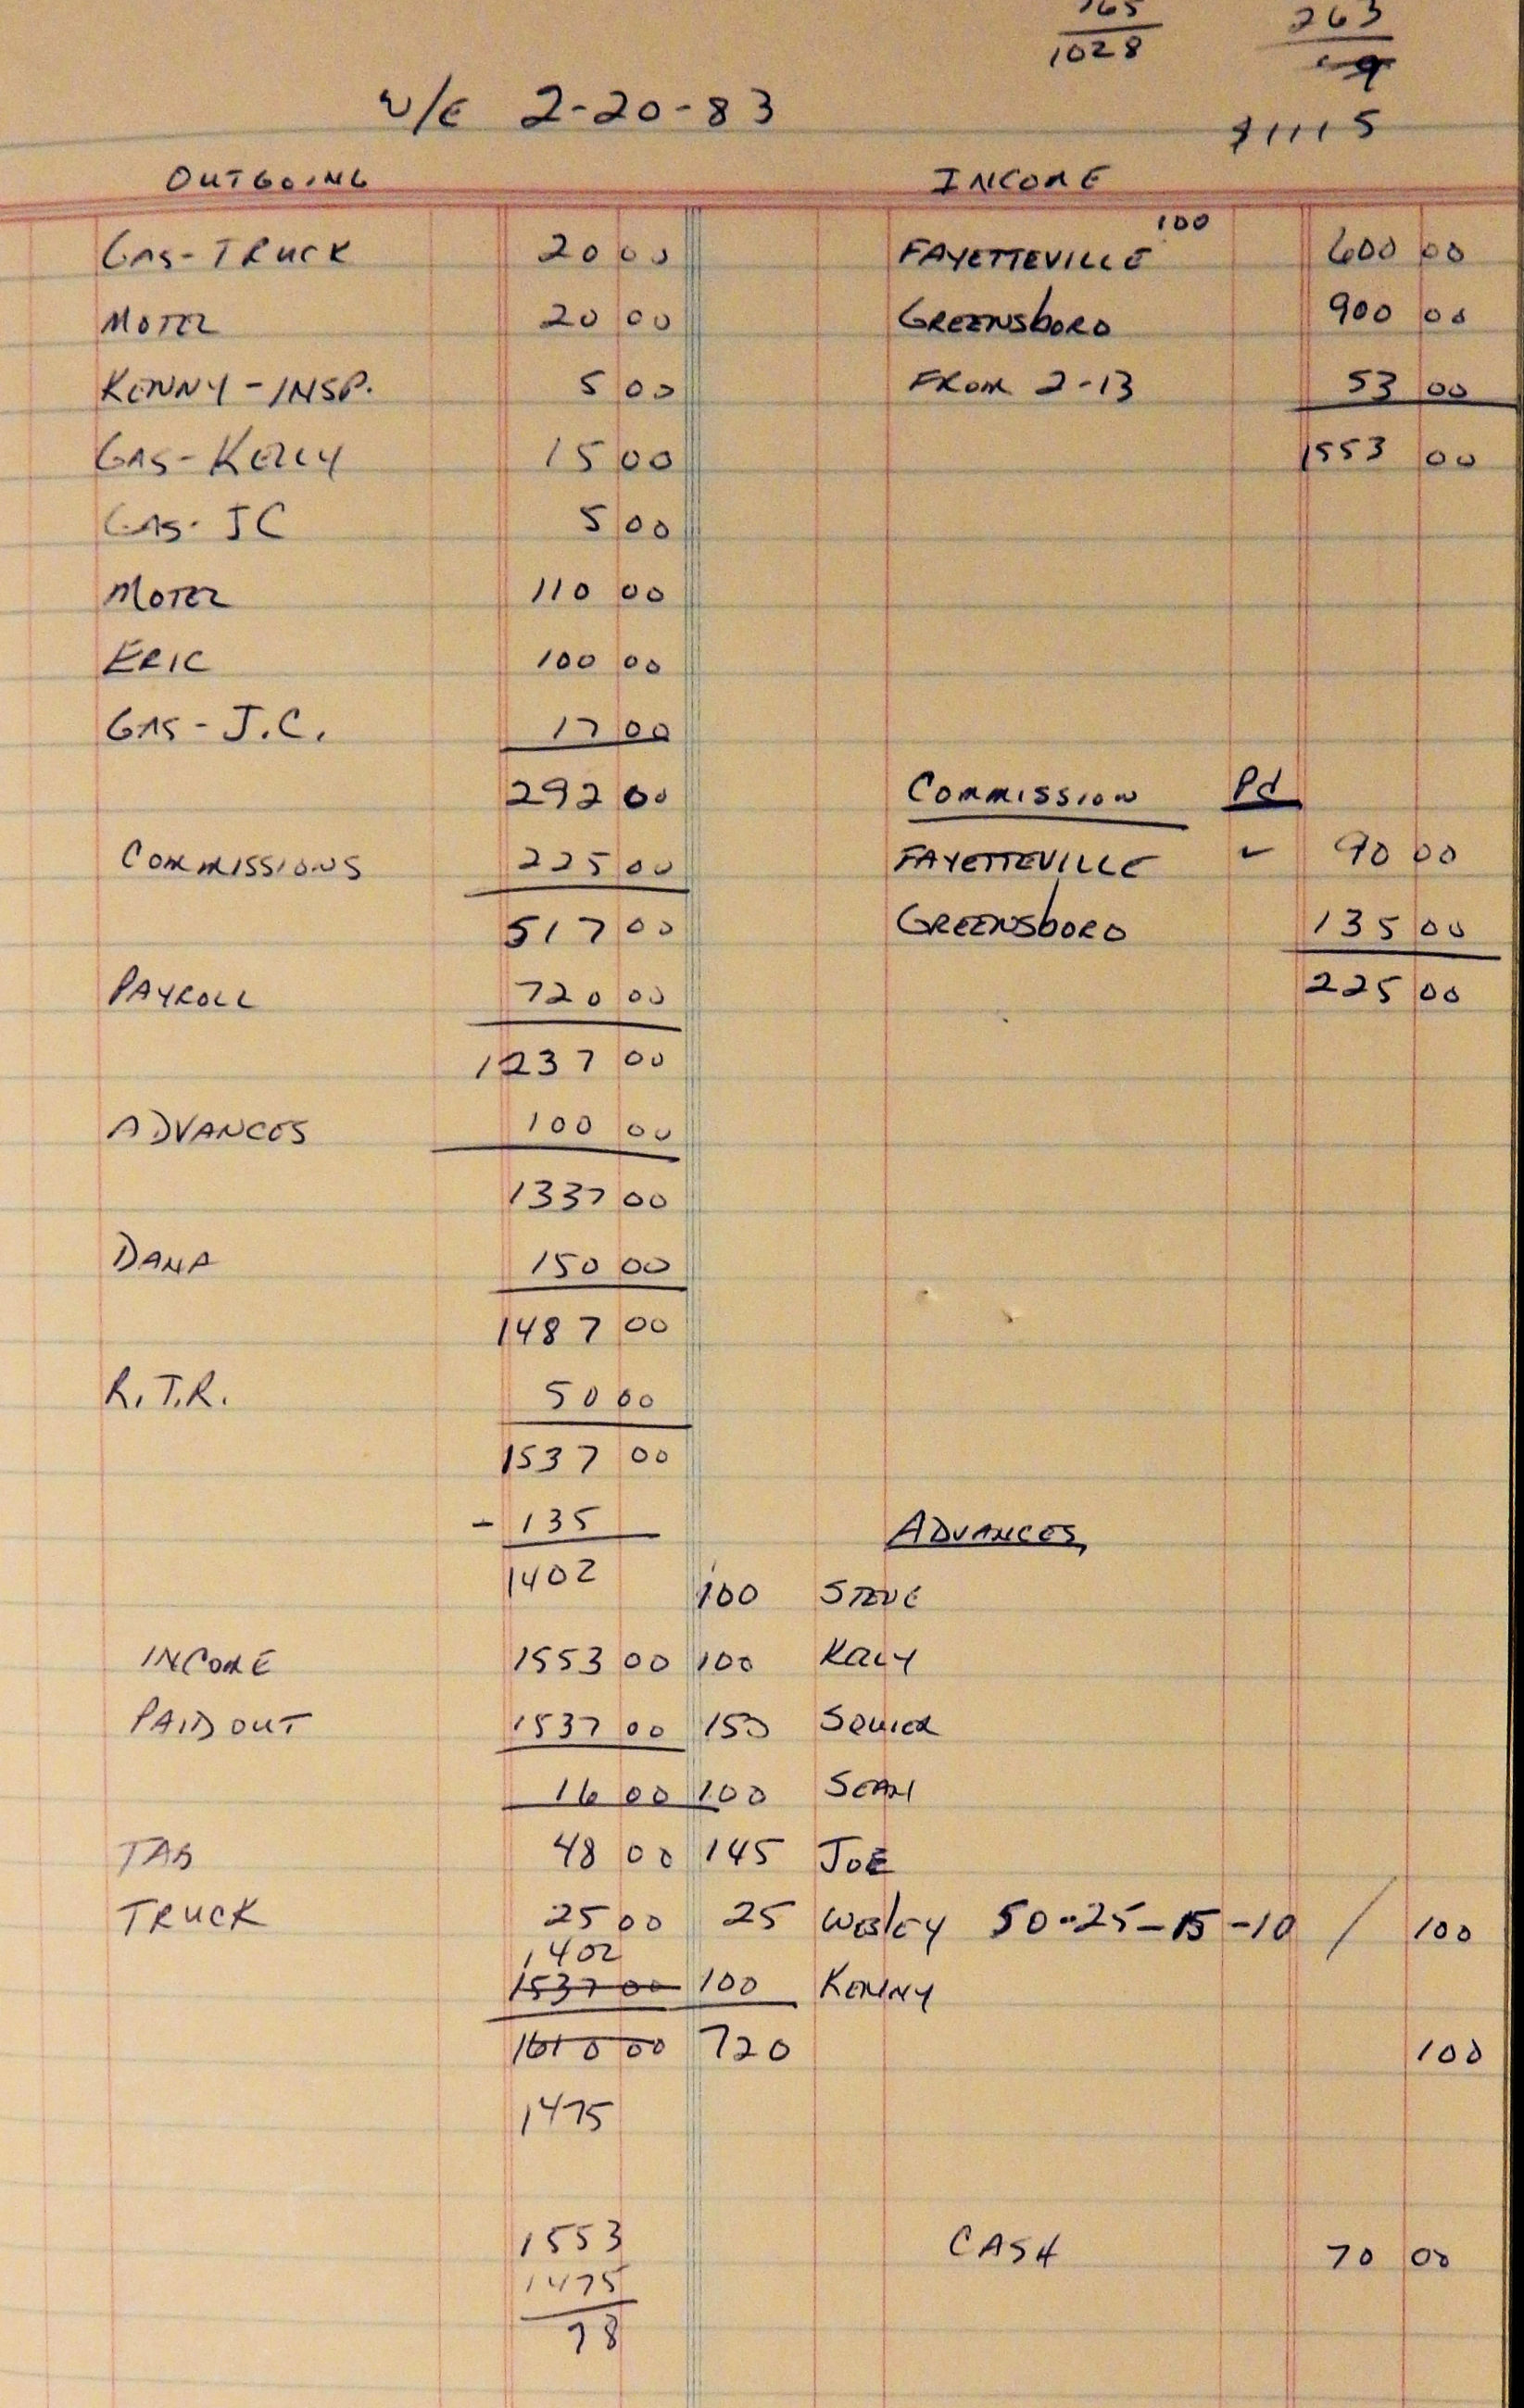 765 263
1028 9
W/E 2-20-83 $1115
OUTGOING INCOME
GAS-TRUCK 20 00 FAYETTEVILLE 100 600 00
MOTEL 20 00 GREENSboRO 900 00
KENNY-INSP. 5 00 FROM 2-13 53 00
GAS-KELLY 15 00 1553 00
GAS-JC 5 00
MOTEL 110 00
ERIC 100 00
GAS-J.C. 17 00
292 00 COMMISSION Pd
COMMISSIONS 225 00 FAYETTEVILLE ✓ 90 00
517 00 GREENSboRO 135 00
PAYROLL 720 00 225 00
1237 00
ADVANCES 100 00
1337 00
DANA 150 00
1487 00
R.T.R. 50 00
1537 00
- 135 ADVANCES
1402 100 STEVE
INCOME 1553 00 100 KELLY
PAID OUT 1537 00 150
16 00 100 SEAN
TAB 48 00 145 JOE
TRUCK 25 00 25 WESLEY 50-25-15-10 / 100
1402
1537 00 100 KENNY
1610 00 720 100
1475
1553 CASH 70 00
1475
78